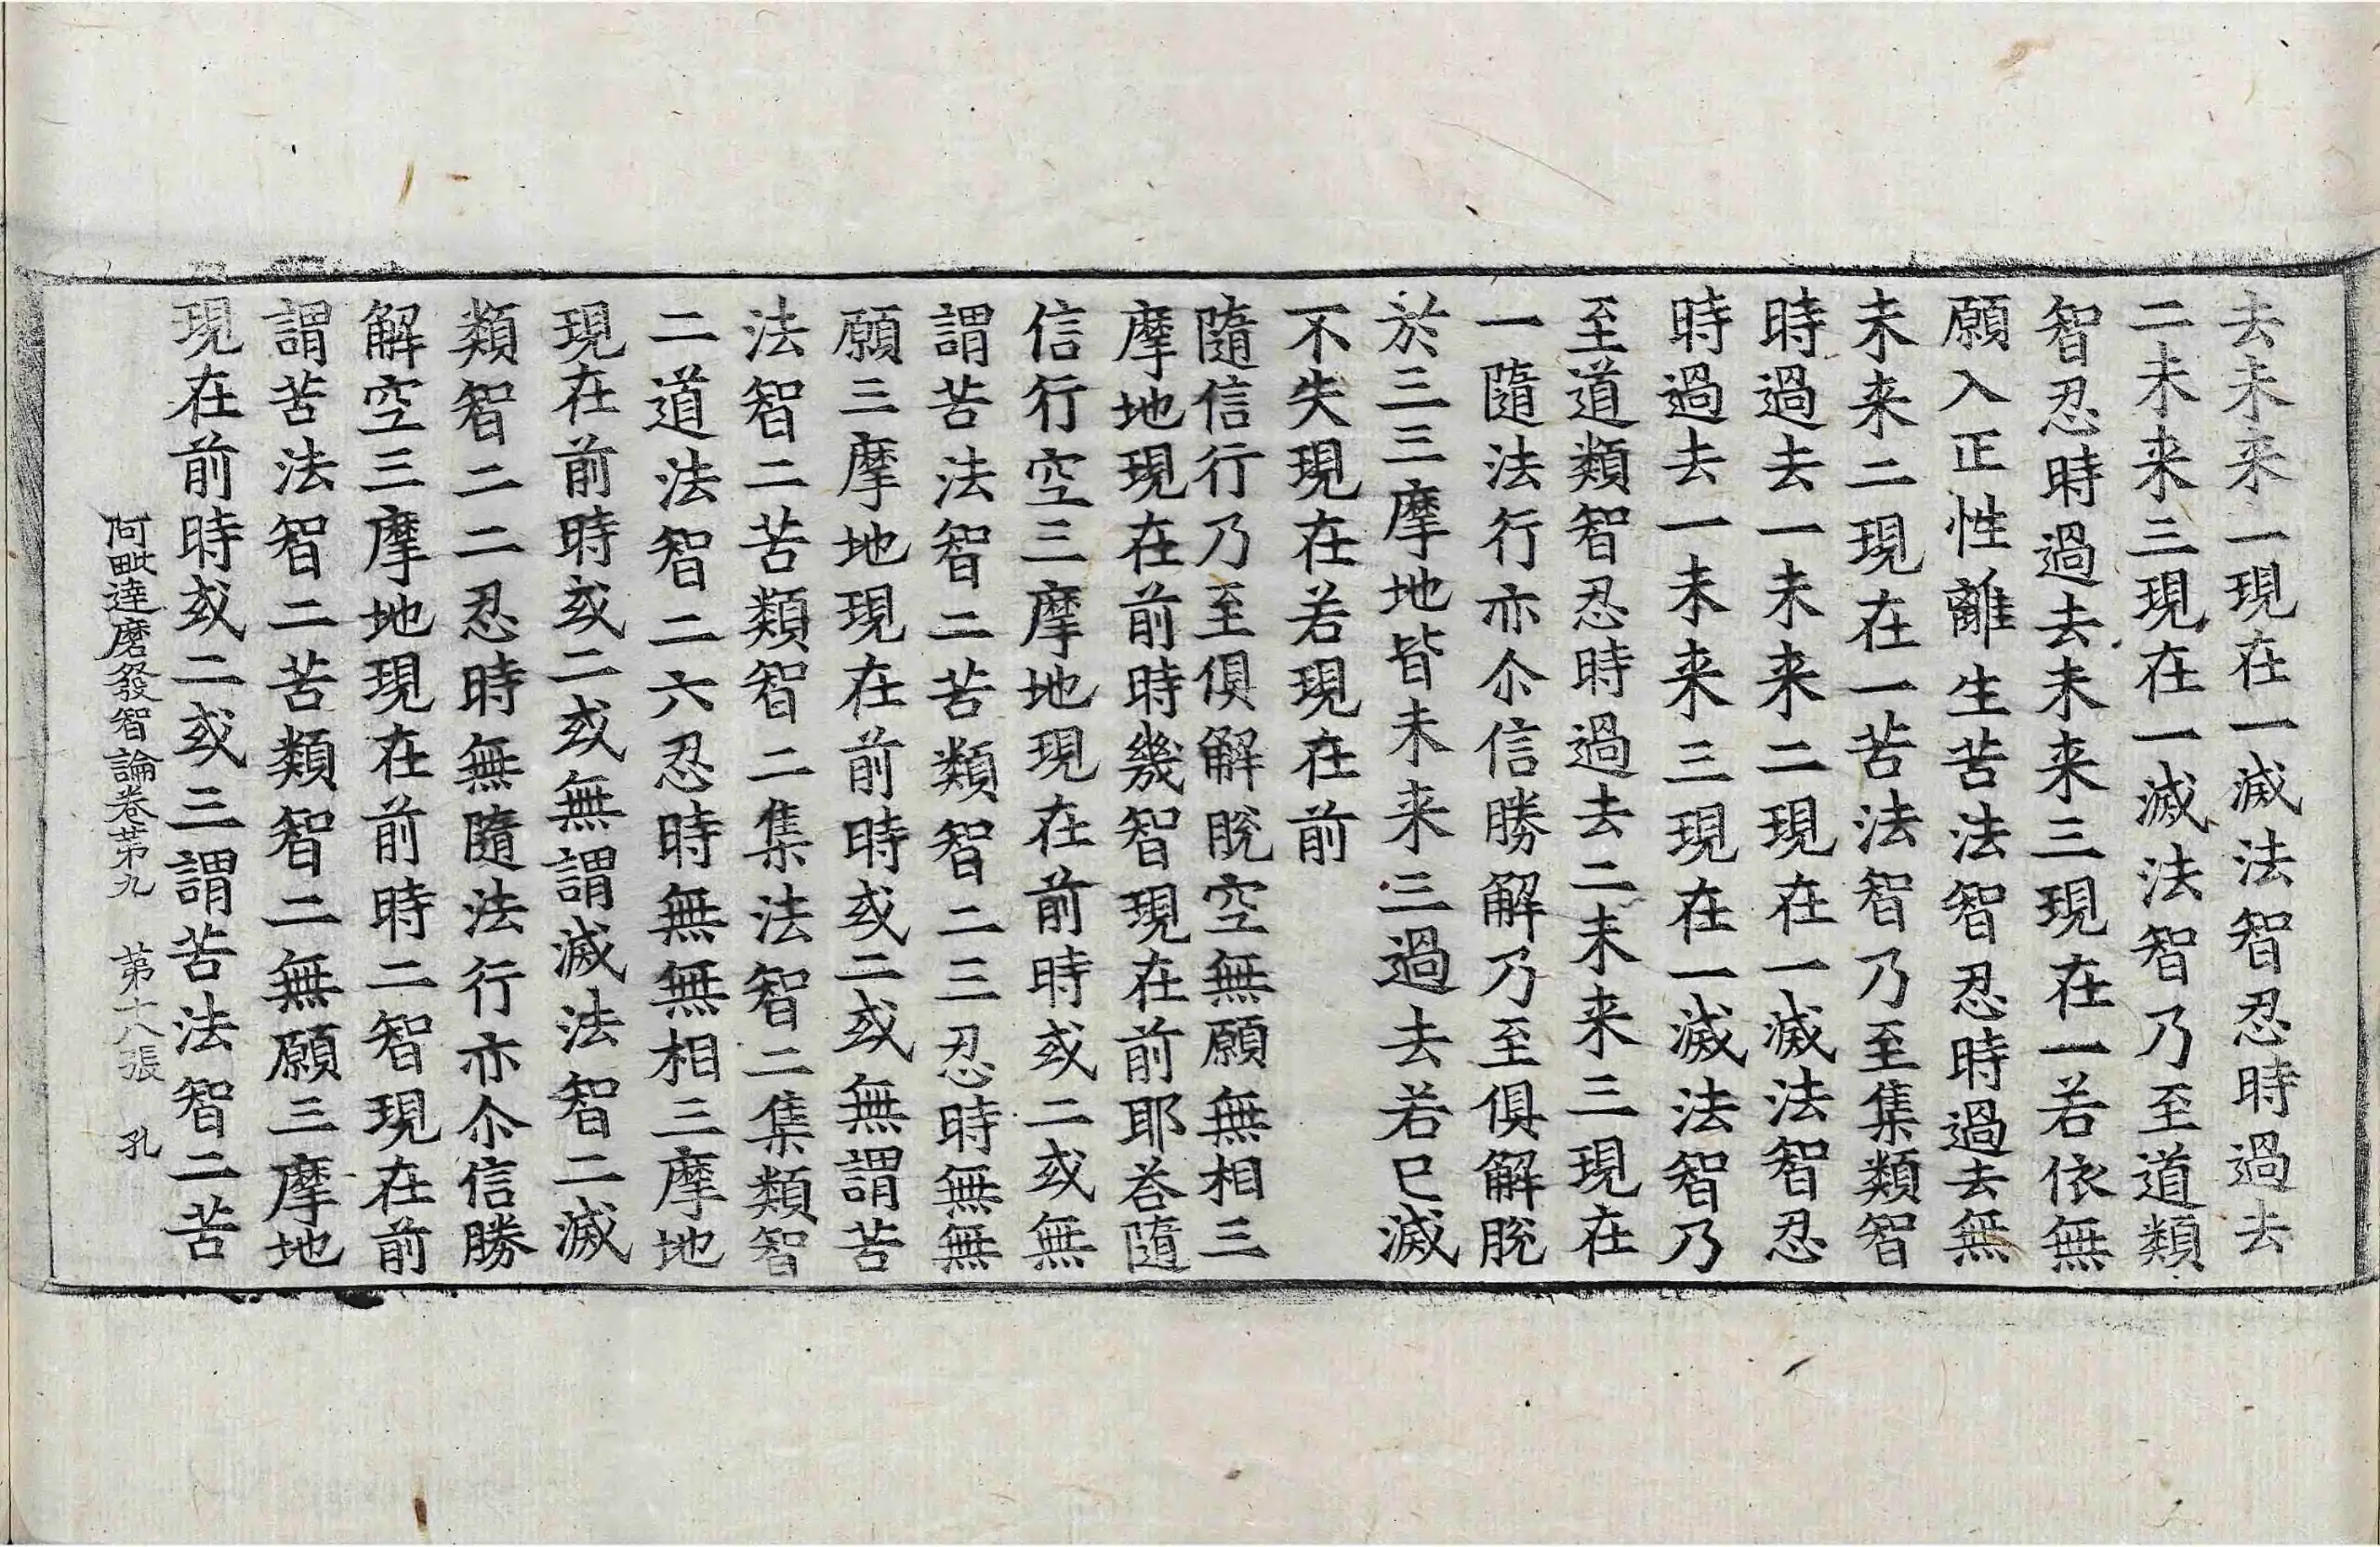 去未来一現在一滅法智忍時過去
二未来三現在一滅法智乃至道類
智忍時過去未来三現在一若依無
願入正性離生苦法智忍時過去無
未来二現在一苦法智乃至集類智
時過去一未来二現在一滅法智忍
時過去一未来三現在一滅法智乃
至道類智忍時過去二未来三現在
一隨法行亦尒信勝解乃至俱解脫
於三三摩地皆未来三過去若已滅
不失現在若現在前
隨信行乃至俱解脫空無願無相三
摩地現在前時幾智現在前耶荅隨
信行空三摩地現在前時或二或無
謂苦法智二苦類智二三忍時無無
願三摩地現在前時或二或無謂苦
法智二苦類智二集法智二集類智
二道法智二六忍時無無相三摩地
現在前時或二或無謂滅法智二滅
類智二二忍時無隨法行亦尒信勝
解空三摩地現在前時二智現在前
謂苦法智二苦類智二無願三摩地
現在前時或二或三謂苦法智二苦
阿毗達磨發智論卷苐九 苐十八張 孔